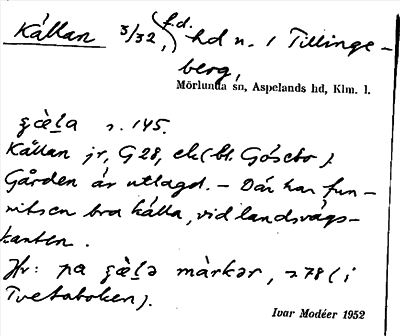 Källan 3/32, f.d. hd n. 1 Tillinge-
berg,
Mörlunda sn, Aspelands hd, Klm. l.
s. 145.
Källan jr, G 28, ek (bl. Gösebo).
Gården är utlagd. – Där har fun-
nits en bra källa, vid landsvägs-
kanten.
Hr: pa màrkər, s 78 (i
Tvetaboken).
Ivar Modéer 1952